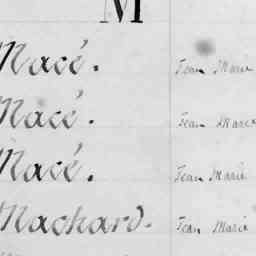 M
Macé. Jean Marie
Macé. Jean Marie
Macé. Jean Marie
Machard. Jean Marie